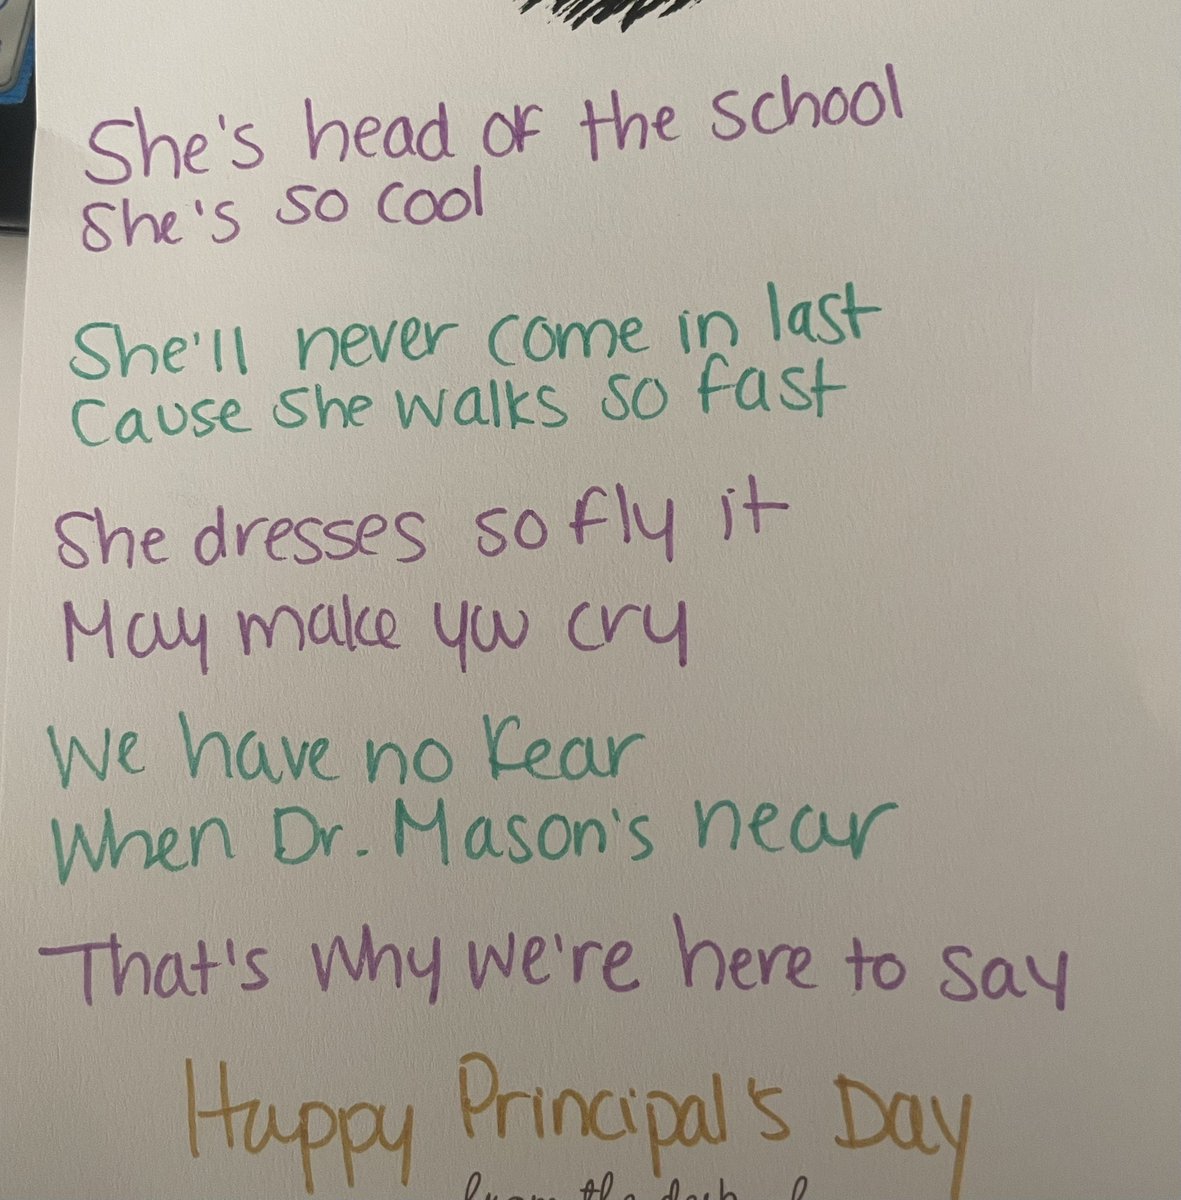 She's head of the school
She's so cool
She'll never come in last
Cause she walks so fast
She dresses so fly it
May make you cry
We have no fear
When Dr. Mason's near
That's why we're here to say
Happy Principal's Day
from the